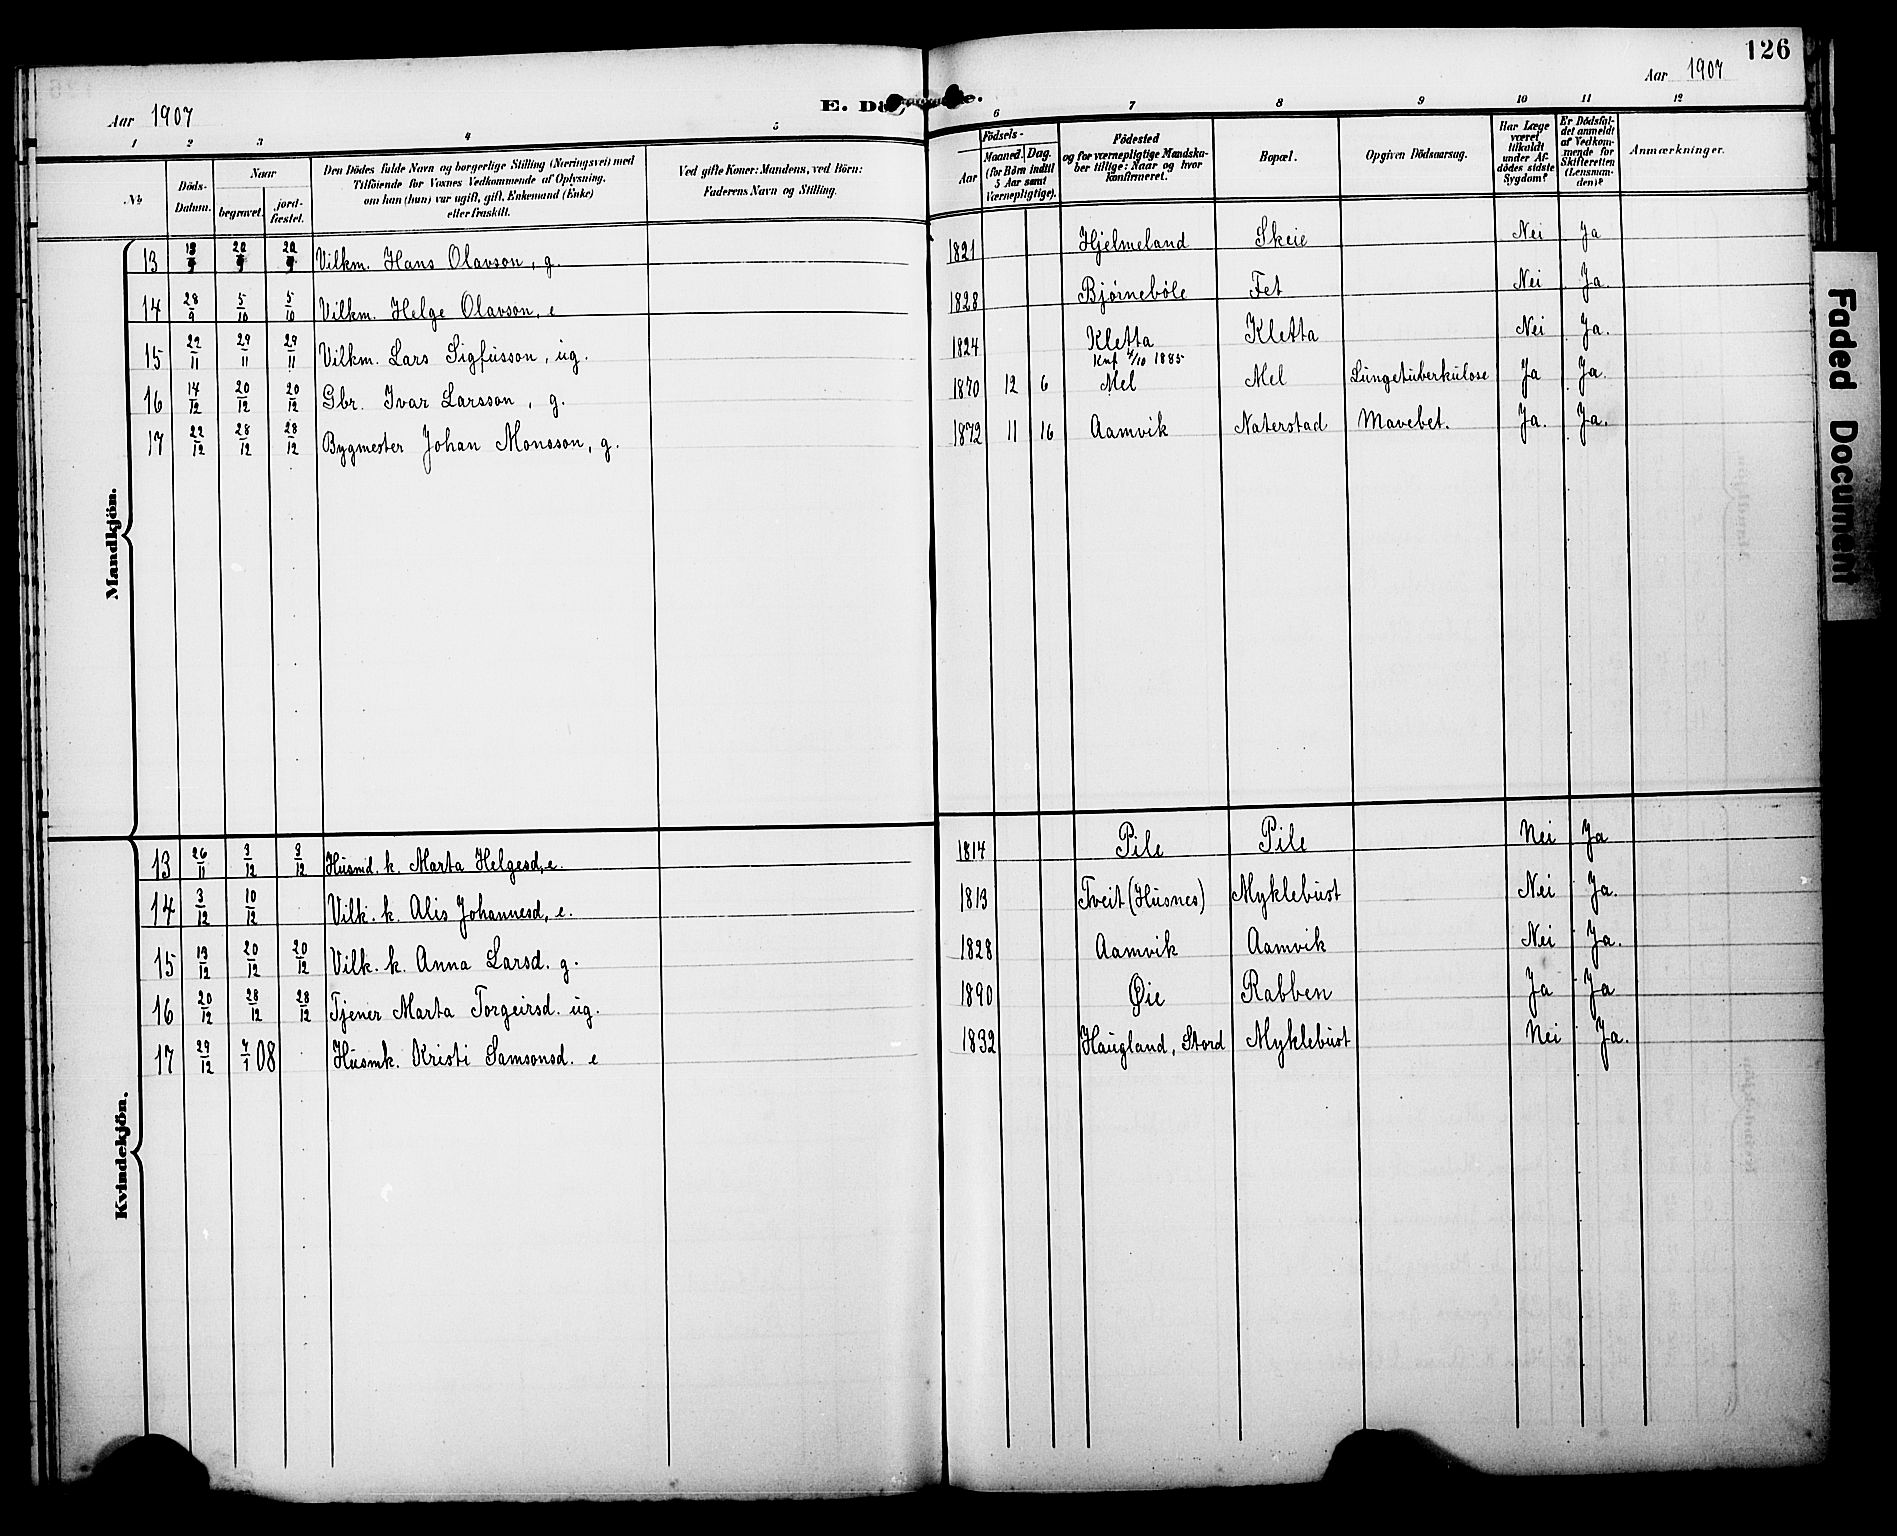 126
Aar 1907
E. Dö
Aar 1907
1 2 3 4 5
6 7 8 9 10 11 12
№
Döds-Datum.
Naar
begravet.
jord-fæstet.
Den Dödes fulde Navn og borgerlige Stilling (Næringsvei) med
Tilföiende for Voxnes Vedkommende af Oplysning,
om han (hun) var ugift, gift, Enkemand (Enke)
eller fraskilt.
Ved gifte Koner: Mandens, ved Börn:
Faderens Navn og Stilling.
Födsels-
Aar
Maaned. Dag.
(for Börn indtil
5 Aar samt
Værnepligtige).
Födested
og for værnepligtige Mandska-
ber tillige: Naar og hvor
konfirmeret.
Bopæl.
Opgiven Dödsaarsag.
Har Læge
været
tilkaldt
under Af-
dödes sidste
Sygdom?
Er Dödsfal-
det anmeldt
af Vedkom-
mende for
Skifteretten
(Lensman-
den)?
Anmærkninger.
Mandkjön.
13 Vilkm. Hans Olavson, g. 1821 Hjelmeland Skeie Nei Ja
14 28/9 5/10 5/10 Vilkm. Helge Olavson, e 1828 Bjørnebøle Fet Nei Ja.
15 22/11 29/11 29/11 Vilkm. Lars Sigfusson, ug. 1824 Kletta Kletta Nei Ja.
Knf 4/10 1885
16 14/12 20/12 20/12 Gbr. Ivar Larsson, g. 1870 12 6 Mel Mel Lungetuberkulose Ja Ja.
17 22/12 28/12 28/12 Bygmester Johan Monsson, g. 1872 11 16 Aamvik Naterstad Mavebet. Ja. Ja.
Kvindekjön.
13 26/11 3/12 3/12 Husmd. k. Marta Helgesd, e. 1814 Pile Pile Nei Ja
14 3/12 10/12 Vilk. k. Alis Johannesd, e. 1813 Tveit (Husnes) Myklebust Nei Ja.
15 13/12 20/12 20/12 Vilk. k. Anna Larsd. g. 1828 Aamvik Aamvik Nei Ja.
16 20/12 28/12 28/12 Tjener Marta Torgeirsd. ug. 1890 Øie Rabben Ja Ja
17 29/12 4/1 08 Husmk. Kristi Samsonsd. e 1832 Haugland, Stord Myklebust Nei Ja.
Faded Document